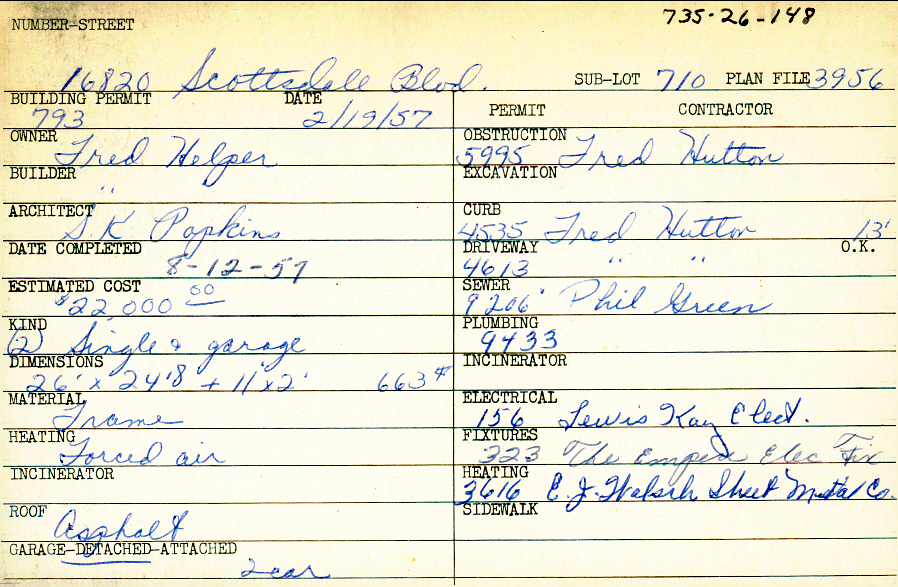 735-26-148
NUMBER-STREET
16820 Scottsdale Blvd. SUB-LOT 710 PLAN FILE 3956
BUILDING PERMIT DATE
793 2/19/57
OWNER
Fred Helper
BUILDER
" 
ARCHITECT
S.K Popkins
DATE COMPLETED
8-12-57
ESTIMATED COST
$22,000 00
KIND
(2) Single & garage
DIMENSIONS
26' x 24'8 + 11'x2' 663#
MATERIAL
Frame
HEATING
Forced air
INCINERATOR
ROOF
Asphalt
GARAGE-DETACHED-ATTACHED
2 car
PERMIT CONTRACTOR
OBSTRUCTION
5995 Fred Hutton
EXCAVATION
CURB
4535 Fred Hutton 13'
DRIVEWAY O.K.
4613 " "
SEWER
9206 Phil Green
PLUMBING
9433
INCINERATOR
ELECTRICAL
156 Lewis Kay Elect.
FIXTURES
323 The Empire Elec Fix
HEATING
3616 E.J. Walsh Sheet Metal Co.
SIDEWALK